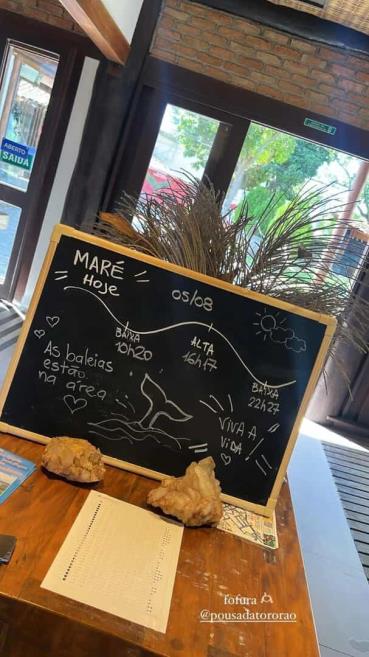 ABERTO
SAIDA
MARÉ
Hoje
05/08
BAIXA
10h20
ALTA
16h17
BAIXA
22h27
As baleias
estão
na área
VIVA A
VIDA!
fofura
@pousadatororao